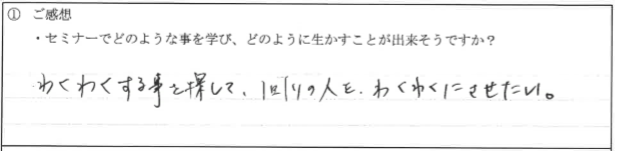 ① ご感想
・セミナーでどのような事を学び、どのように生かすことが出来そうですか？
わくわくする事を探して、周りの人を、わくわくにさせたい。